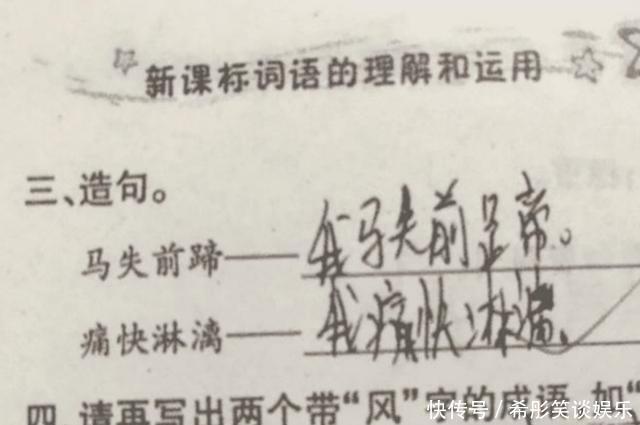 新课标词语的理解和运用
三、造句。
马失前蹄——我马失前蹄。
痛快淋漓——我痛快淋漓。
四、请再写出两个带“风”字的成语,如“
快传号／希彤笑谈娱乐